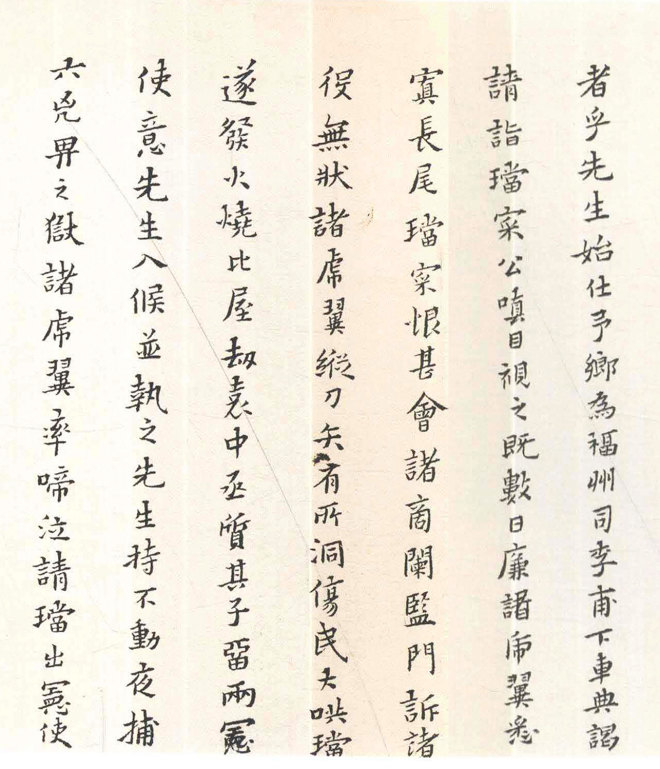 者乎先生始仕予鄉為福州司李甫下車典謁
請詣璫寀公嗔目視之既數日廉諸虎翼悉
寘長尾璫寀恨甚會諸商闌監門訴諸
役無狀諸虎翼縱刀矢有所洞傷民大哄璫
遂發火燒比屋劫袁中丞質其子留兩憲
使意先生入候並執之先生時不動夜捕
六兇畀之獄諸虎翼率啼泣請璫出憲使